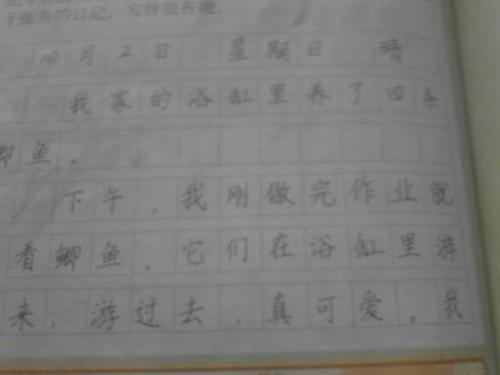 于鲫鱼的日记，写得很有趣。
10月2日 星期日 晴
我家的浴缸里养了四条
鲫鱼。
下午，我刚做完作业就
看鲫鱼。它们在浴缸里游
来，游过去，真可爱。我